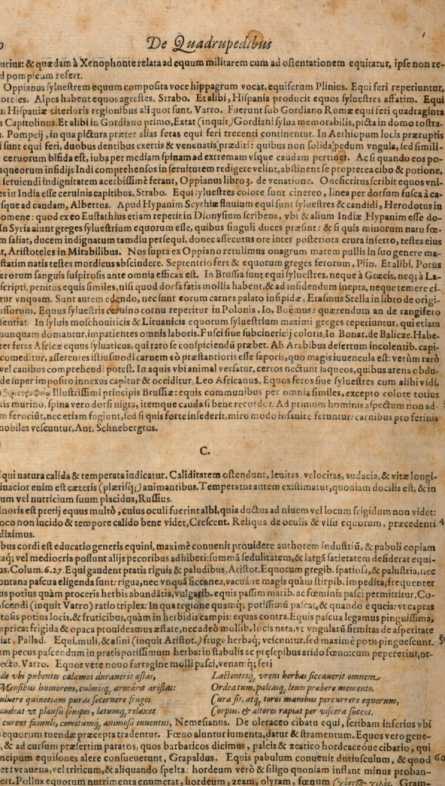 De Quadrupedibus
& quædam à Xenophonte relata ad equum militarem cum ad ostentationem equitatur, ipse non re-
pompicam refert.
Oppianus syluestrem equum composita voce hippagrum vocat, equiferum Plinius. Equi feri reperiuntur,
Alpes habent equos agrestes. Strabo. Et alibi, Hispania producit equos syluestres affatim. Equi
Hispaniæ citerioris regionibus aliquot sunt. Varro. Fuerunt sub Gordiano Romæ equi feri quadraginta
Capitolinus. Et alibi in Gordiano primo, Extat (inquit) Gordiani sylua memorabilis, picta in domo rostra-
Pompeij, in qua pictura præter alias feras equi feri trecenti continentur. In Aethiopum locis præruptis
sunt equi feri, duobus dentibus exertis & venenatis præditi: quibus non solida pedum vngula, sed simili-
ceruorum bifida est, iuba per mediam spinam ad extremam vsque caudam pertinet. Ac si quando eos po-
insidijs Indi comprehensos in seruitutem redigere velint, abstinent se propterea cibo & potione,
seruiendi indignitatem acerbissimè ferant, Oppianus libro 3. de venatione. Onesicritus scribit equos vni-
India esse ceruinis capitibus, Strabo. Equi syluestres colore sunt cinereo, linea per dorsum fusca à ca-
vsque ad caudam, Albertus. Apud Hypanim Scythiæ fluuium equi sunt syluestres & candidi, Herodotus in
quod ex eo Eustathius etiam repetit in Dionysium scribens, vbi & alium Indiæ Hypanim esse do-
In Syria aiunt greges syluestrium equorum esse, quibus singuli duces præsunt: & si quis minorum natu fœ-
saliat, ducem indignatum tamdiu persequi, donec assecutus ore inter posteriora crura inserto, testes eius
Aristoteles in Mirabilibus. Nos supra ex Oppiano retulimus onagrum marem pullis in suo genere ma-
statim natis testes mordicus abscindere. Septentrio fert & equorum greges ferorum, Plin. Et alibi, Potus
ferorum sanguis suspirosis ante omnia efficax est. In Brussia sunt equi syluestres, neque à Græcis, neque à La-
penitus equis similes, nisi quod dorsa fatis mollis habent, & ad insidendum inepta, neque temere ci-
vnquam. Sunt autem edendo, nec sunt eorum carnes palato insipidæ, Erasmus Stella in libro de origi-
Equus syluestris ceruino cornu reperitur in Polonia, Io. Boëmus: quærendum an de rangifero
In syluis moschouiticis & Lituanicis equorum syluestrium maximi greges reperiuntur, qui etiam
nunquam domantur, impatientes omnis laboris. Fusci sue subcinericij coloris Io. Bonar. de Balicze. Habe-
feros Africæ equos syluaticos, qui raro se conspiciendi præbet. Ab Arabibus desertum incolentib. capi-
assertores istiusmodi carnem eò præstantioris esse saporis, quo magis iuuencula est: verùm rarò
vel canibus comprehendi potest. In aquis vbi animal versatur, certos nectunt laqueos, quibus arena obdu-
de super imposito innexus capitur & occiditur. Leo Africanus. Equos feros siue syluestres cum alibi vidi,
Illustrissimi principis Brussiæ: equis communibus per omnia similes, excepto colore totius
murino, spina vero dorsi nigra, itemque cauda si bene recordor. Ad primum hominis aspectum non ad-
ferociūt, nec etiam fugiunt, sed si quis forte insederit, miro modo insanire feruntur: carnibus pro ferinis
nobiles vescuntur. Ant. Schnebergus.
C.
Equi natura calida & temperata indicatur. Caliditatem ostendunt, leuitas, velocitas, audacia, & vitæ longi-
viuacior enim est cæteris (plærisq;) animantibus. Temperatus autem existimatur, quoniam docilis est, & in
vel nutricium suum placidus, Russius.
est pretij equus multò, cuius oculi fuerint albi, quia ductus ad niuem vel locum frigidum non videt:
loco non lucido & tempore calido bene videt, Crescent. Reliqua de oculis & visu equorum, præcedenti
diximus.
cordi est educatio generis equini, maximè conuenit prouidere authorem industriũ, & pabuli copiam
vel mediocria possunt alijs pecoribus adhiberi: summã sedulitatem, & largã satietatem desiderat equi-
Colum. 6. 27. Equi gaudent pratis riguis & paludibus, Aristot. Equorum gregib. spatiosa, & palustria, nec
montana pascua eligenda sunt: rigua, nec vnquã siccanea, vacuáq; magis quàm stirpib. impedita, frequenter
potius quàm proceris herbis abundãtia, vulgarib. equis passim marib. ac fœminis pasci permittitur. Co-
(inquit Varro) ratio triplex: In qua regione quamq; potissimũ pascas, & quando & queis: vt capras
potius locis, & fruticibus, quàm in herbidis campis: equas contra. Equis pascua legamus pinguissima,
aprica: frigida & opaca prouideamus æstate, nec adeò mollibus locis nata, vt vngularũ firmitas de asperitate
Pallad. Equi, muli, & asini (inquit Aristot.) fruge herbaq; vescuntur, sed maximè potu pinguescunt.
pecus pascendum in pratis potissimum herba: in stabulis ac præsepibus arido fœno: cum pepererint, or-
Varro. Equos vere nouo farragine molli pasci, venam q; feri
vbi pubentis calamos durauerit æstas,
Lactentesq; vreni herbas siccauerit omnem
Mensibus humorem, culmisq; armârit aristas:
Ordeatum, paleasq; leuis præbere memento.
puluere quinetiam puras secernere fruges
Cura sit, atq; toros manibus percurrere equorum,
Gaudeat vt plausu sonipes, lætumq́; relaxet
Corpus, & alterius rapiat per viscera succos.
curent famuli, comitumq; animosa iuuentus, Nemesianus. De oleraceo cibatu equi, scribam inferius vbi
equorum tuendæ præcepta tradentur. Fœno aluntur iumenta, datur & stramentum. Equos vero gene-
& ad cursum præsertim paratos, quos barbaricos dicimus, paleis & zeatico hordeaceoue cibario, qui
principum equisones alere consueuerunt, Grapaldus. Equis pabulum conuenit diutiusculum, & quod
vel triticum, & aliquando spelta: hordeum verò & siligo quoniam instant minus proban-
Pollux equorum nutrimenta enumerat, hordeum, zeam, olyram, fœnum